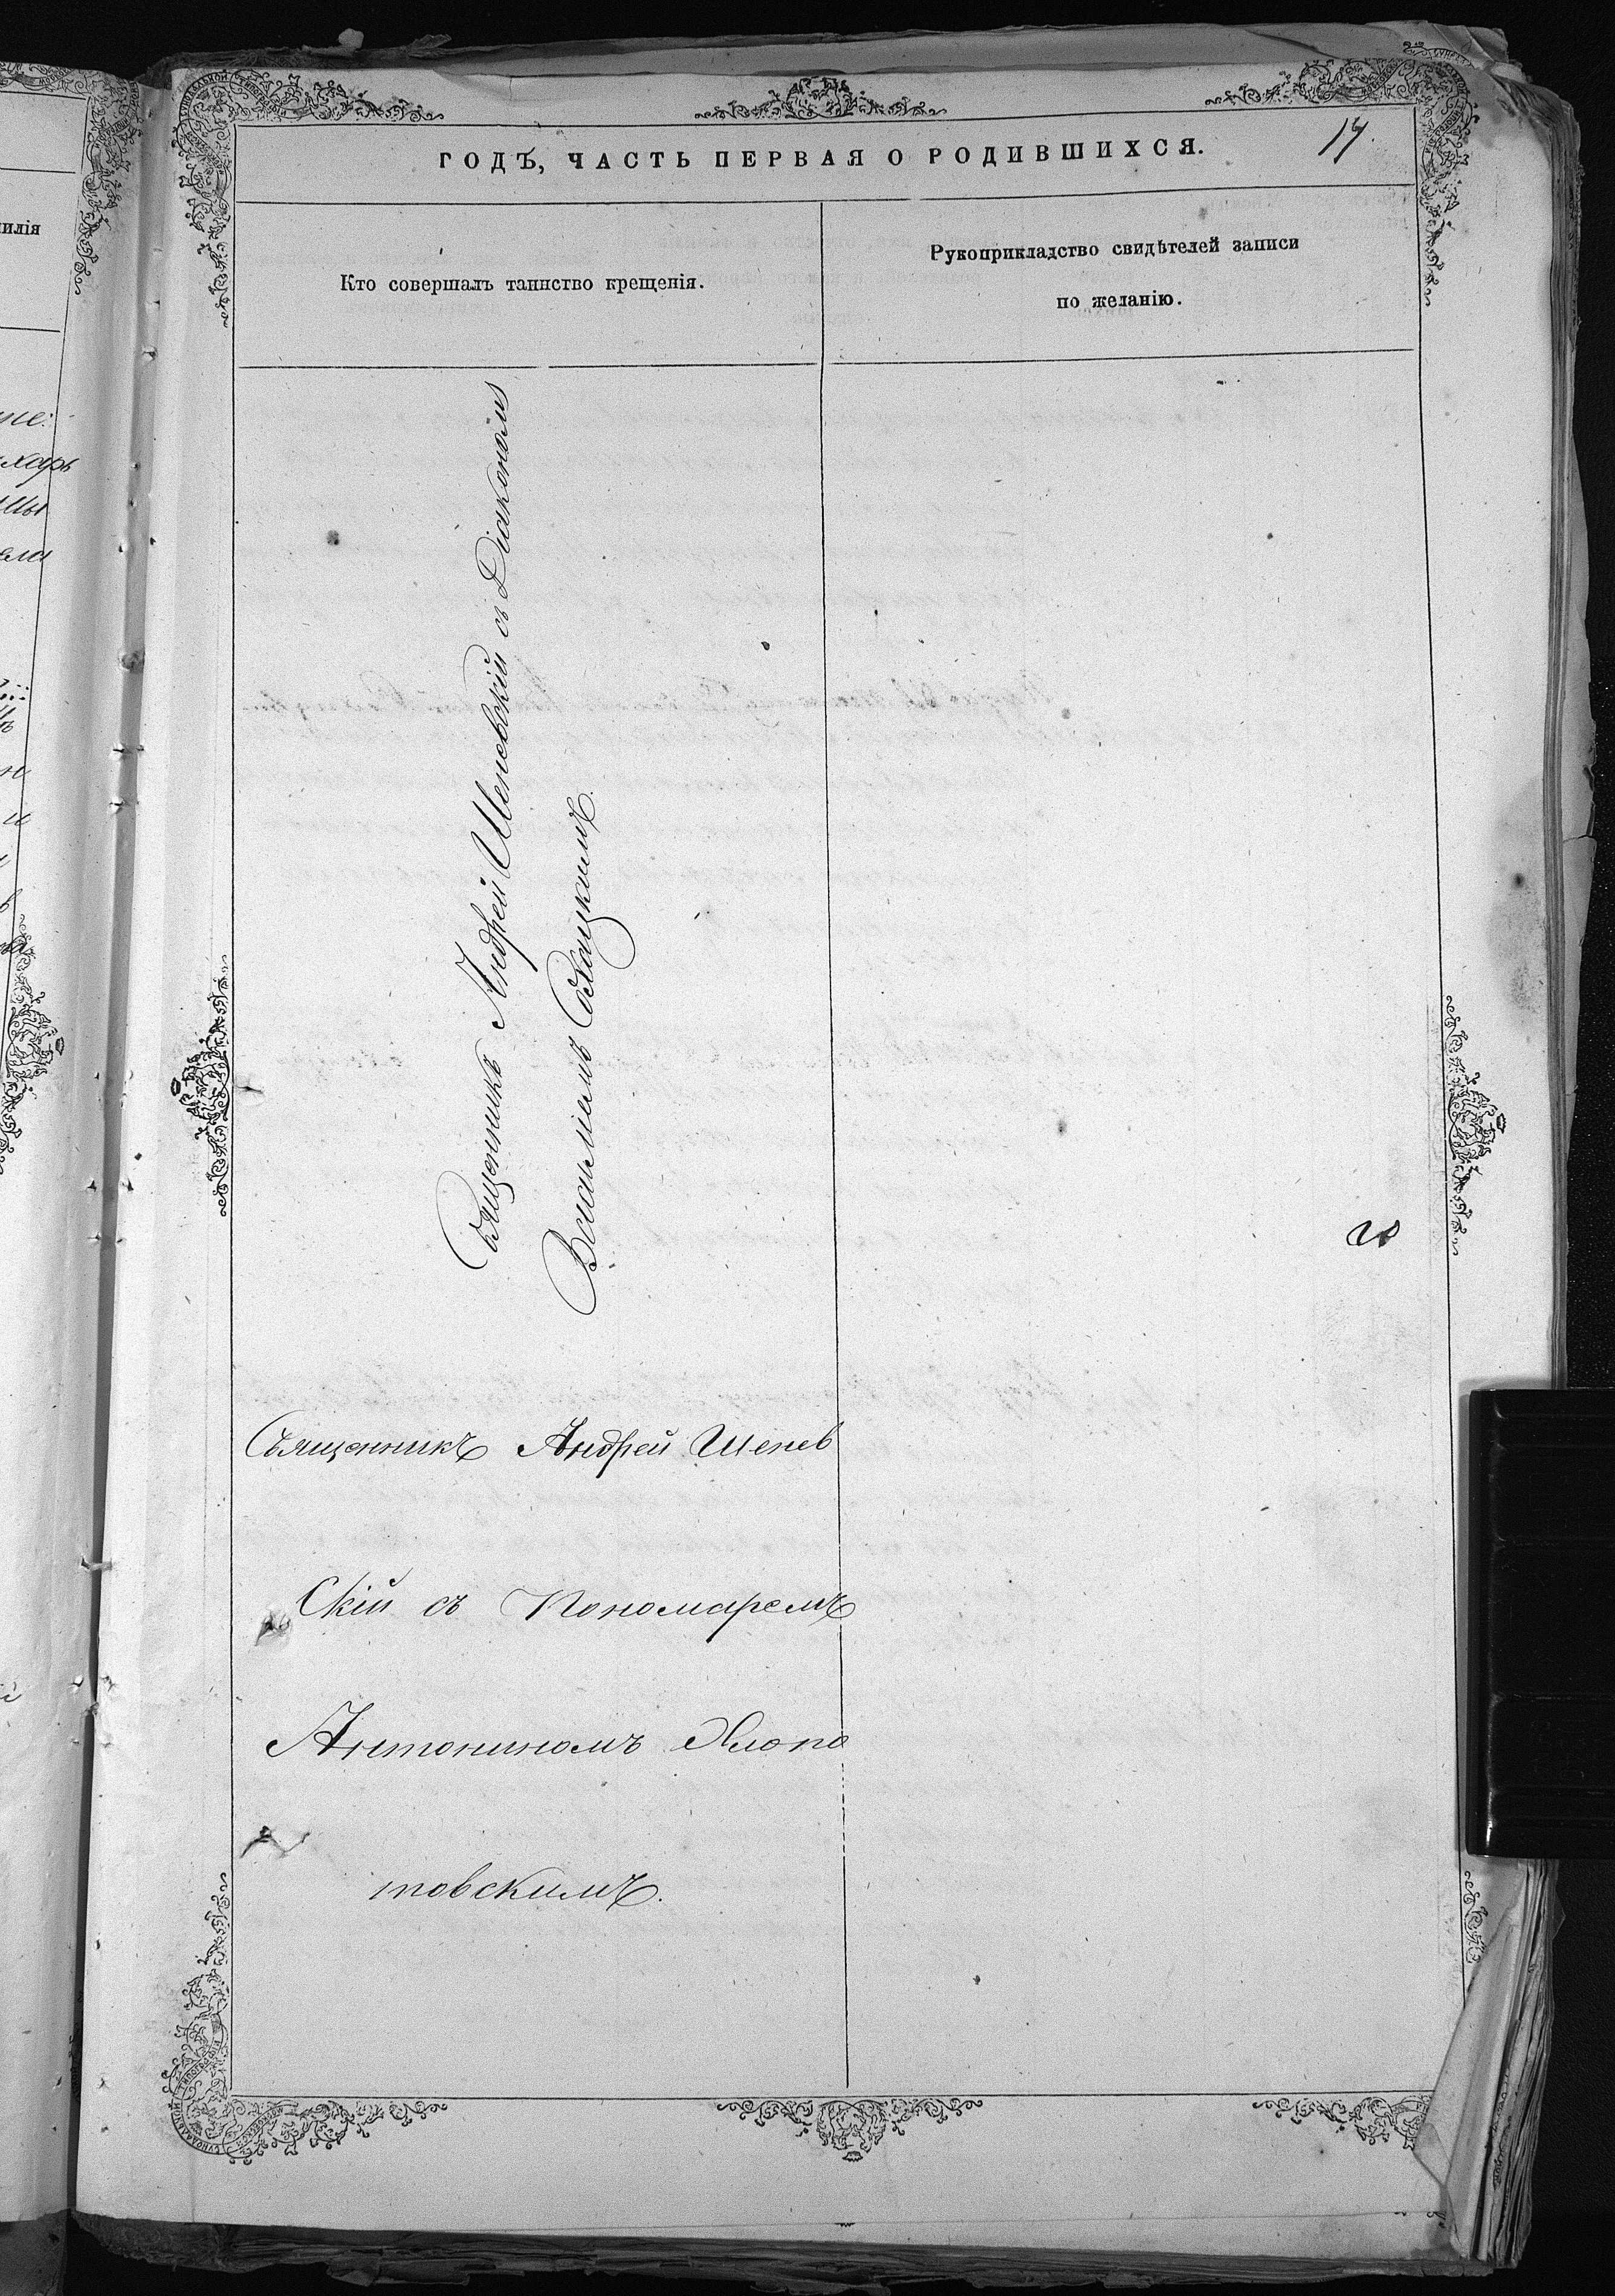 ГОДЪ, ЧАСТЬ ПЕРВАЯ О РОДИВШИХСЯ.
Кто совершалъ таинство крещенія.
Рукоприкладство свидѣтелей записи
по желанію.
Священникъ Андрей Шеневскій съ Діакономъ
Василіемъ
Священникъ Андрей Шенев
скій съ Пономаремъ
Антониномъ Хлопо
товскимъ.